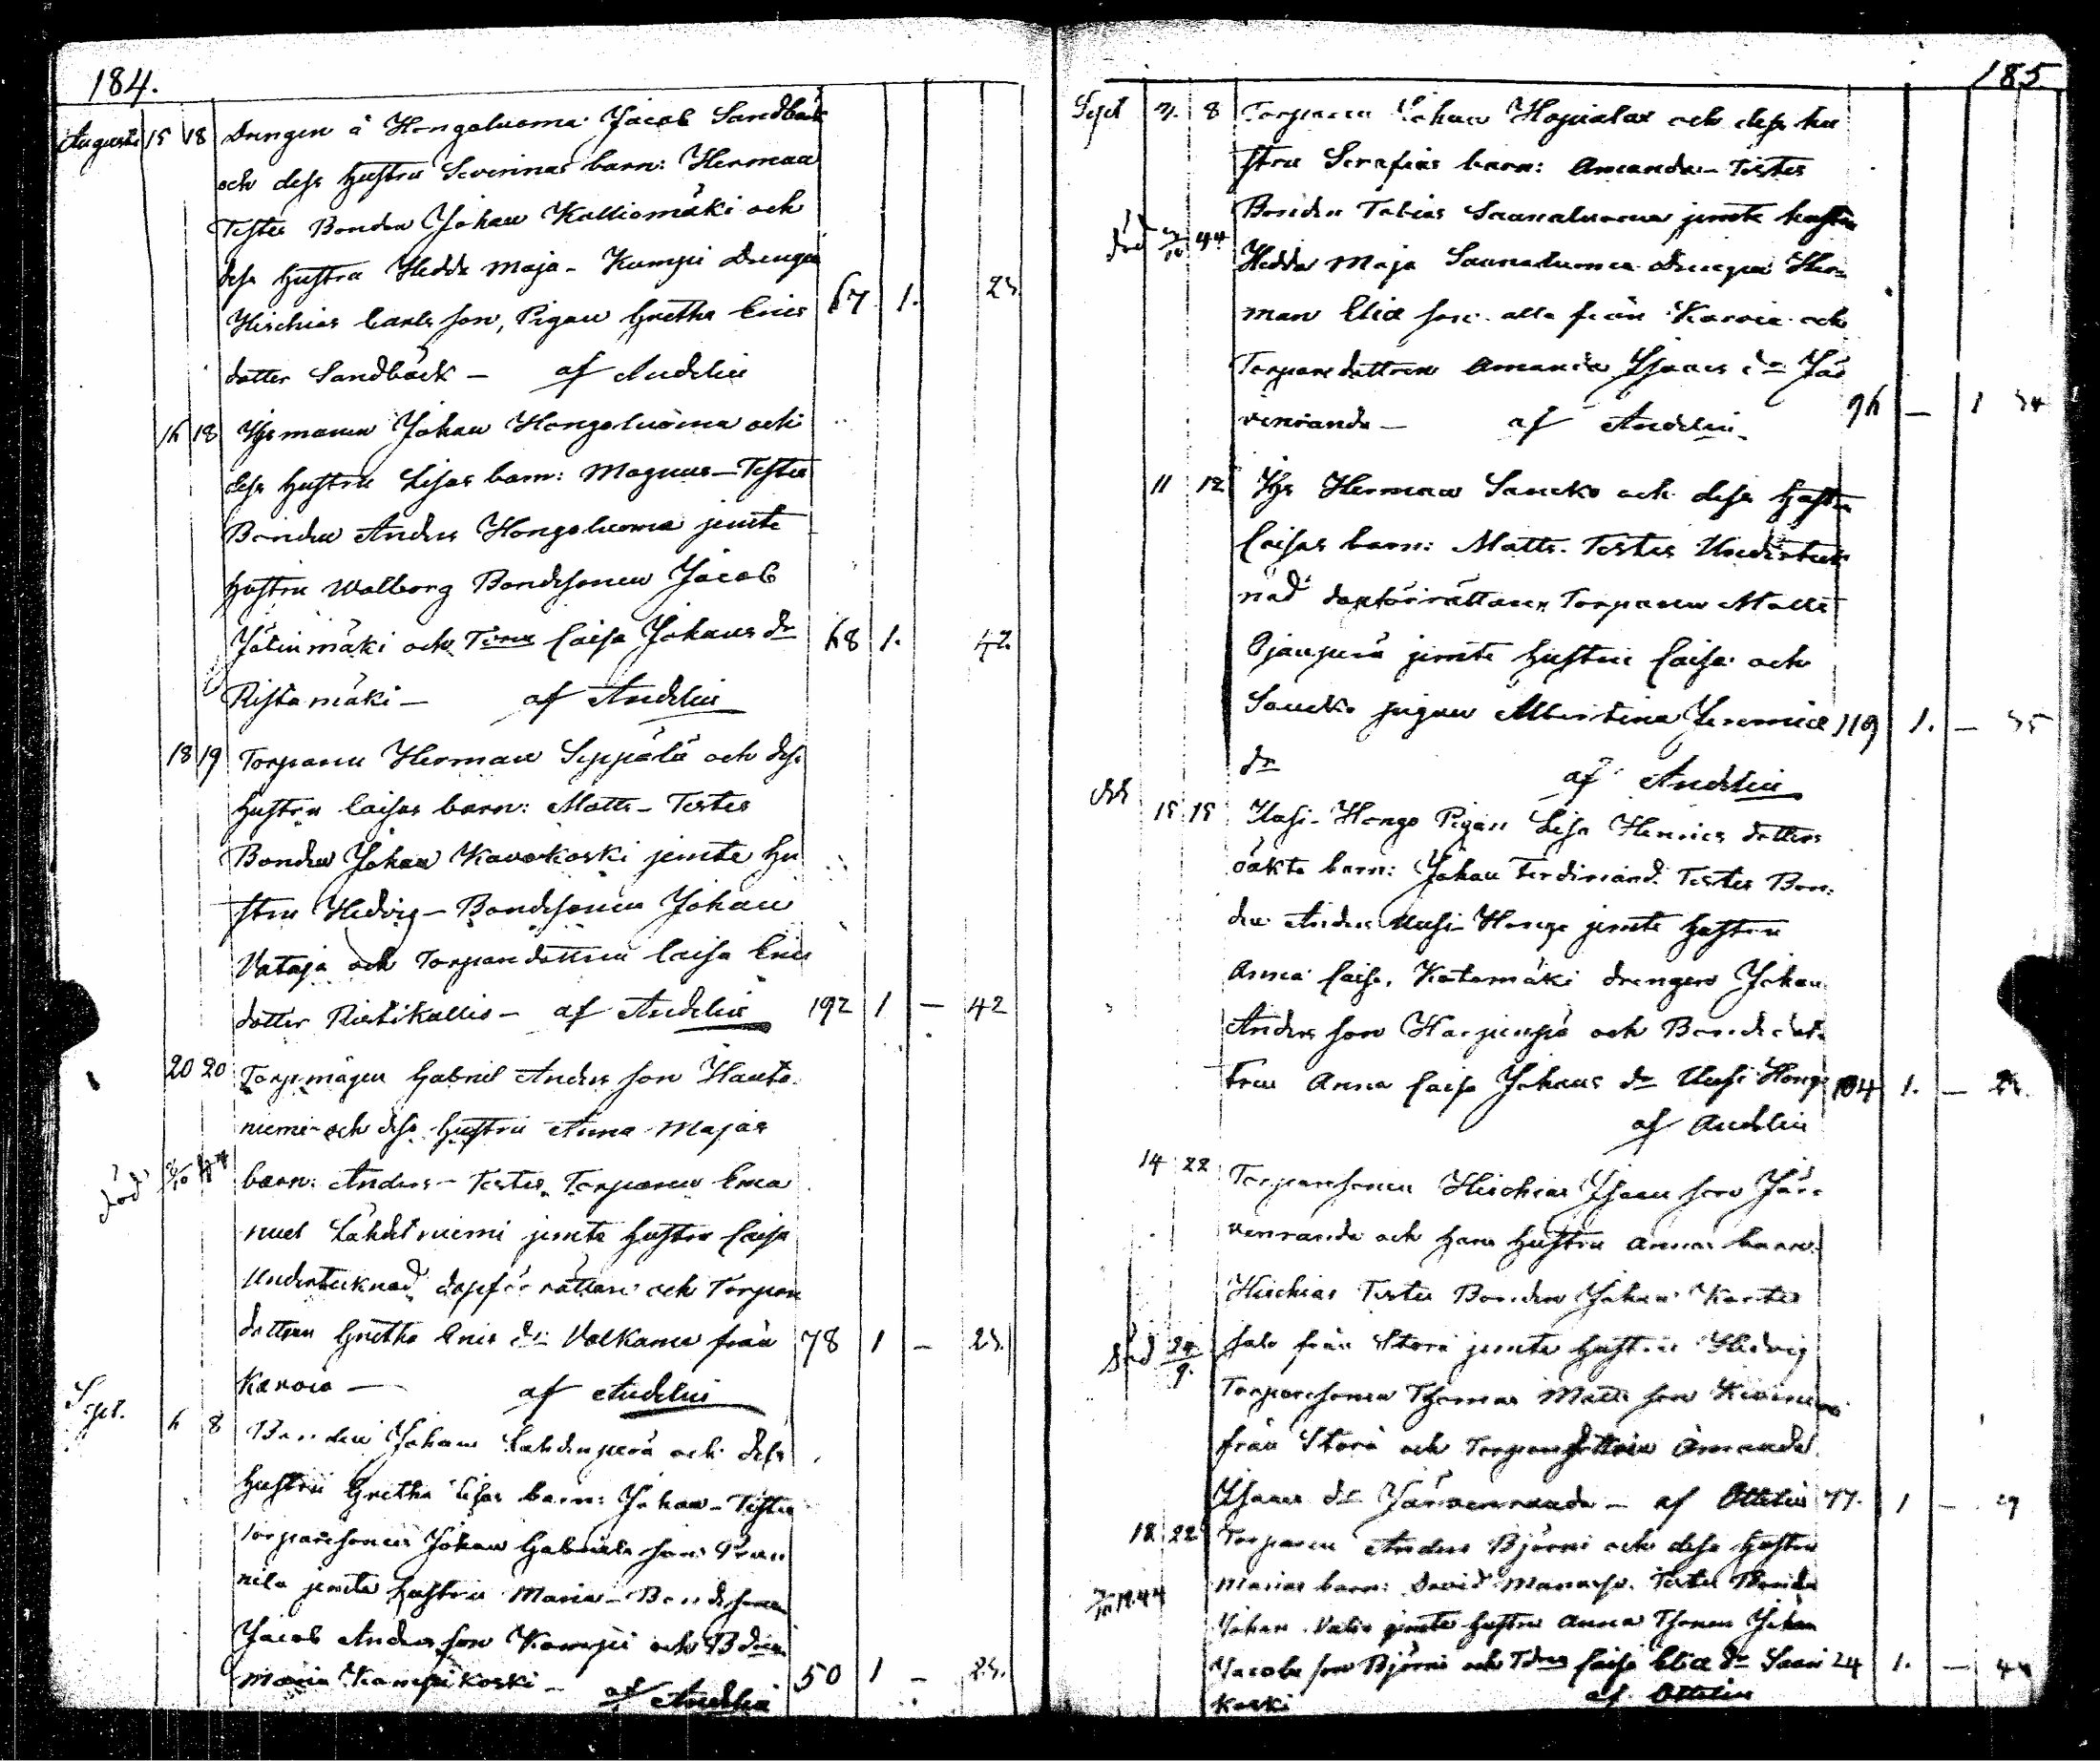 184.
Augusti 15 18 Drengen å Hongoluoma Jacob Sandbäck
och dess hustru Severinas barn: Herman
Testes Bonden Johan Kalliomäki och
dess hustru Hedda Maja - Kumpu Drengen
Hischias Carls son, Pigan Gretha Erics 67 1. 23
dotter Sandbäck — af Andelin
16 18 Johan Hongoluoma och
dess hustru Lisas barn: Magnus — Testes
Bonden Anders Hongoluoma jemte
hustru Walborg Bondesonen Jacob
Jätinmäki och Caisa Johans dr 68 1. 42
Ristamäki — af Andelin
18 19 Torparen Herman Seppälä och dess
hustru Caisas barn: Matts - Testes
Bonden Johan Kavokoski jemte hu
stru Hedvig — Bondesonen Johan
Vataja och Torparedottren Caisa Erics
dotter Ristikallio — af Andelin 192 1 — 42
20 20 Torpmågen Gabriel Anders son Hauta
niemi och dess hustru Anna Majas
död barn: Anders — Testes Torparen Ema
nuel Lähdeniemi jemte hustru Caisa
Undertecknad döpförrättare och Torpare
dottren Gretha Erics dr Valkama från 78 1 — 23.
Karvia — af Andelin
Sept. 6 8 Bonden Johan Lahdenperä och dess
hustru Gretha Lisas barn: Johan — Testes
Torparesonen Johan Gabriels son
nila jemte hustru Maria — Bondesonen
Jacob Anders son Kamppi och
Maria Kamppikoski — af Andelin 50 1 — 23.
185
Sept 7. 8 Torparen Johan Hapialax och dess hu
stru Serafias barn: Amanda — Testes
Bonden Tobias Saunaluoma jemte hustru
död 44 Hedda Maja Saunaluoma Drengen Her-
man Eliæ son alla från Karvia och
Torparedottren Amanda Isaacs dr Jär
venranda — af Andelin 96 — 1 34
11 12 Herman Saucko och dess hustru
Caisas barn: Matts. Testes Underteck
nad döpförrättare, Torparen Matts
Ojanperä jemte hustru Caisa och
Saucko pigan Albertina Jeremiæ 119 1. — 35
dr af Andelin
15 15 Uusi-Hongo Pigan Lisa Henrics dotters
oäkta barn: Johan Ferdinand. Testes Bon-
den Anders Uusi-Hongo jemte hustru
Anna Caisa, Katamäki drengen Johan
Anders son Harjunpä och Bondedot
tren Anna Caisa Johans dr Uusi Hongo 104 1. —
af Andelin
14 22 Torparesonen Hischias Isaacs son Jär-
venranda och hans hustru Annas barn:
Hischias Testes Bonden Johan
död salo från Storå jemte hustru Hedvig
Torparesonen Thomas Matts son
från Storå och Torparedottren Amanda
Isaacs dr Järvenranda — af Ottelin 77. 1 — 29
18 22 Torparen Anders Björni och dess hustru
Marias barn: David Manasse. Testes Bonden
Johan jemte hustru Anna Johan
Jacobs son Björni och Caisa Eliæ dr Saari 24 1. —
koski af Ottelin